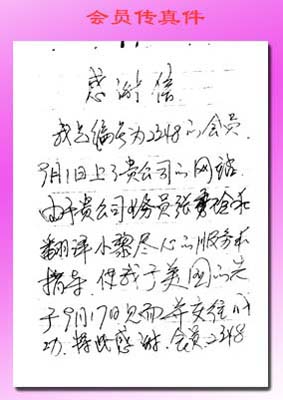 会员传真件
感谢信
我是编号为2348的会员.
9月1日上了贵公司的网站.
由于贵公司业务员张勇
翻译小黎尽心的服务和
指导,使我于美国的先
于9月17日见面并交往成
功.特此感谢.会员2348